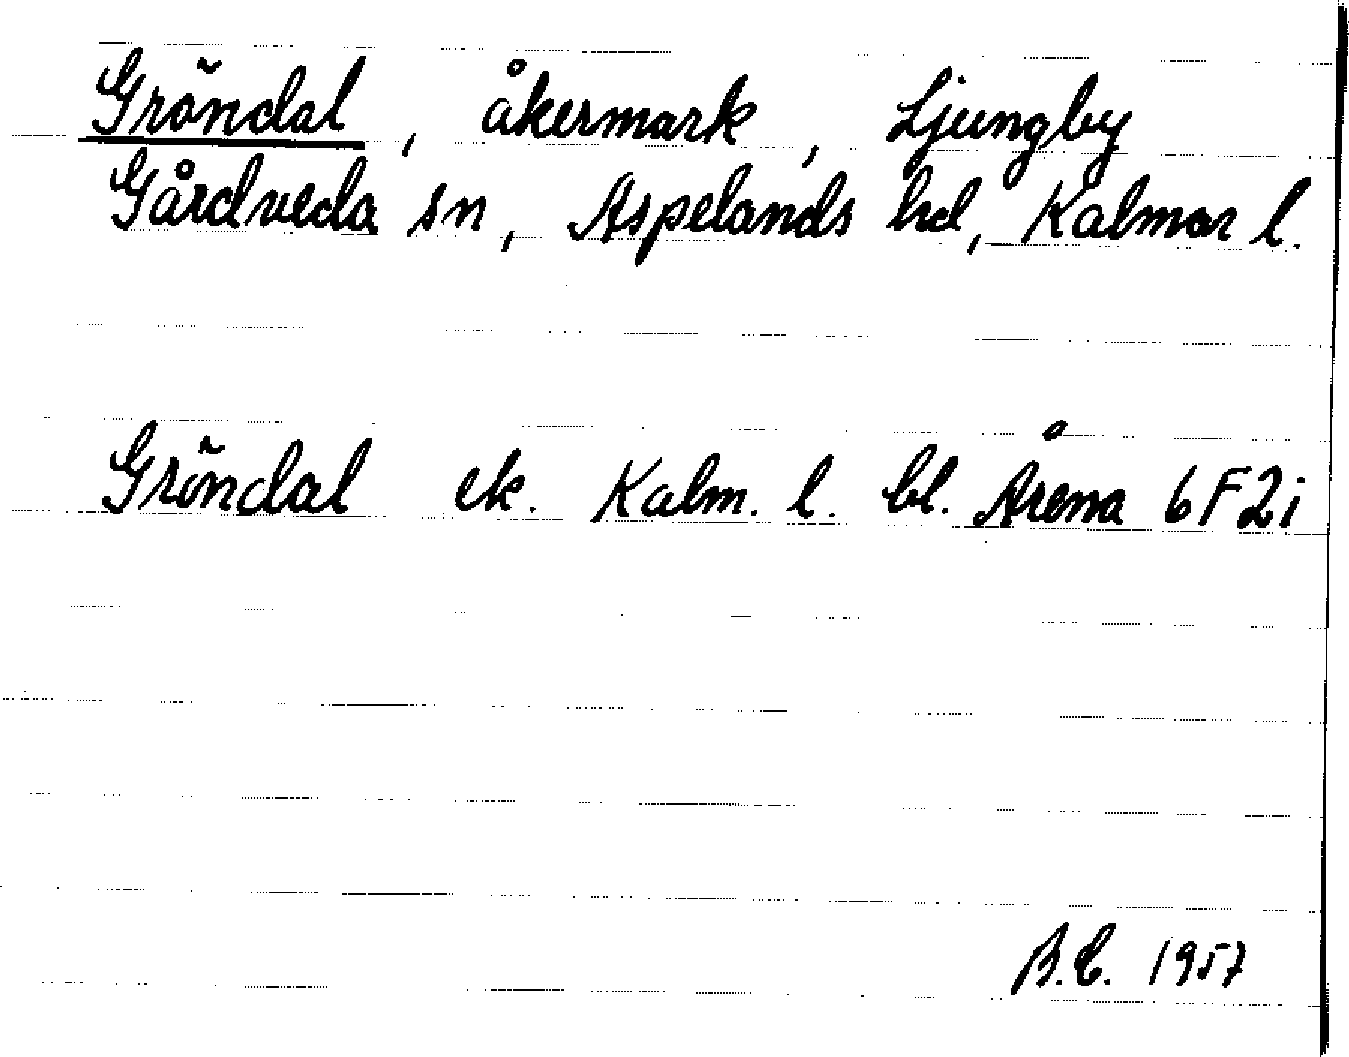 Gröndal, åkermark, Ljungby
Gårdveda sn, Aspelands hd, Kalmar l.
Gröndal ek. Kalm. l. bl. Årena 6F2i
B.E. 1957